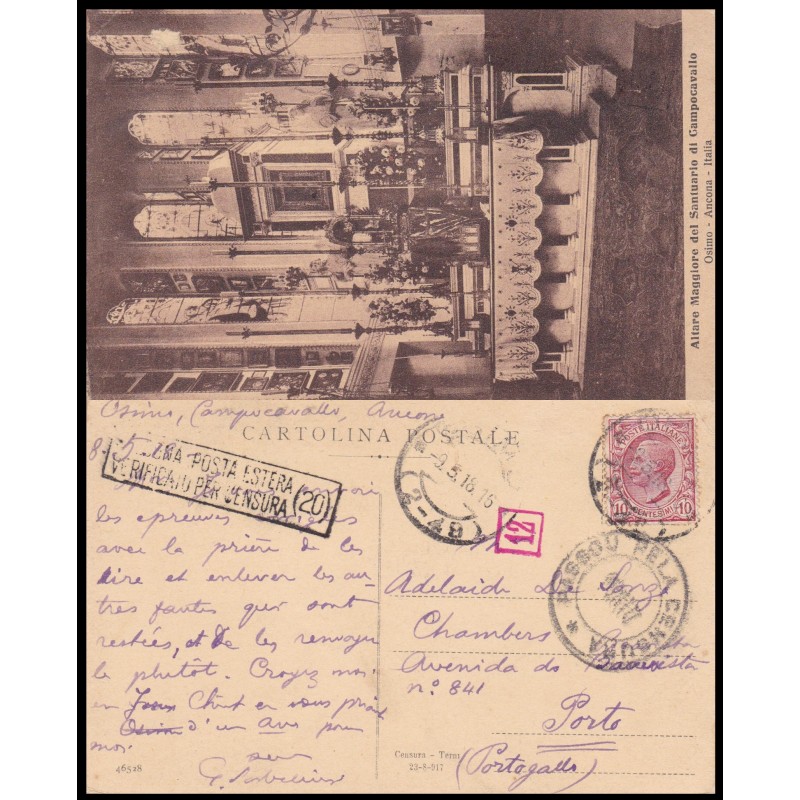 Altare Maggiore del Santuario di Campocavallo
Osimo - Ancona - Italia
Osimo, Campocavallo, Ancone
CARTOLINA POSTALE
8-5-18
POSTA ESTERA
VERIFICATO PER CENSURA
(20)
9.5.18.16
12
POSTE ITALIANE
10 CENTESIMI 10
PASSOU PELA CENSURA
les epreuves
avec la prière de les
lire et enlever les au-
tres fautes qui sont
restées, et de les renvoyer
le plutôt. Croyez moi
en Jesus Christ en vous
Osimo d'un Ave pour
moi
G.
46528
Adelaide De
Chambers
Avenida da Boavista
nº 841
Porto
(Portogallo)
Censura - Terni
23-8-917